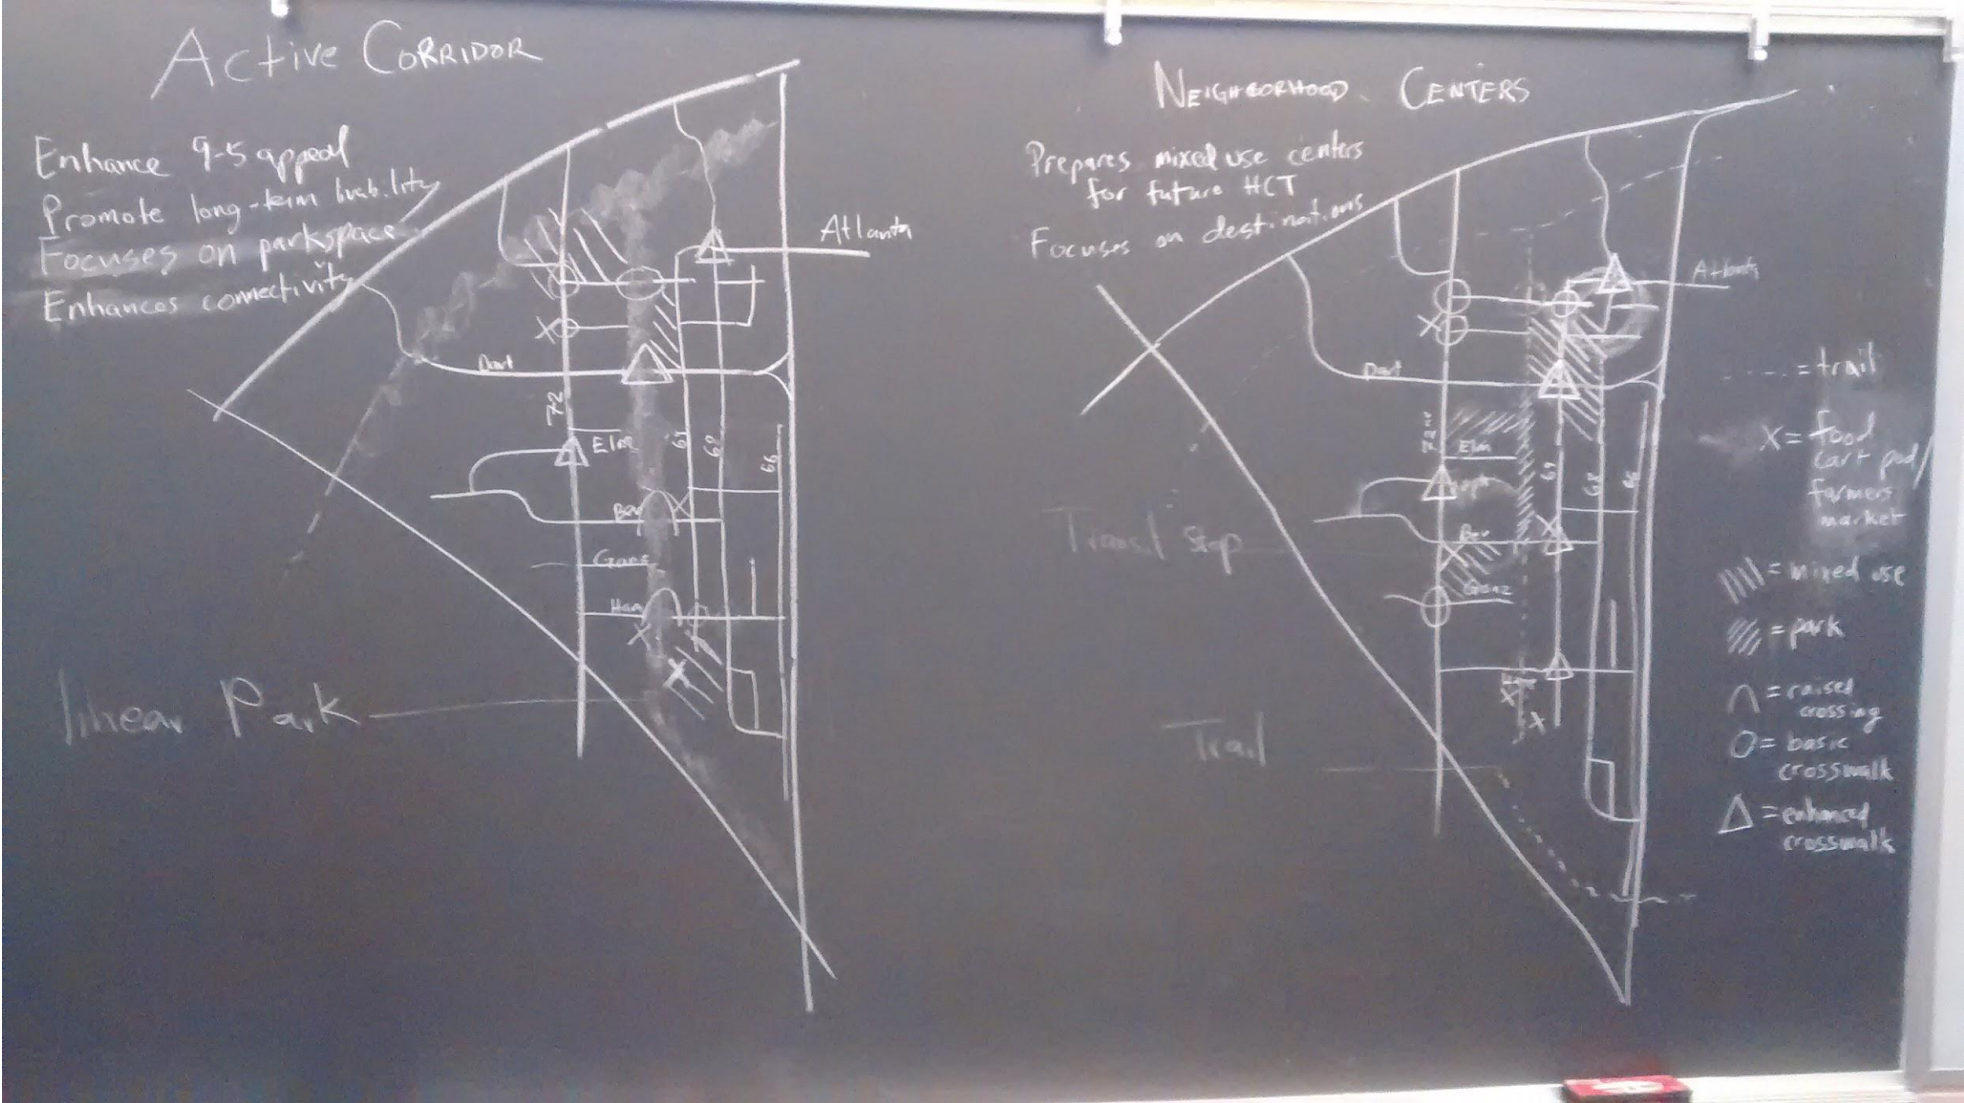 ACtive CORRIDOR
Enhance 9-5 appeal
Promote long-term livability
Focuses on parkspace
Enhances connectivity
Atlanta
Dart
72
Elm
67
68
66
Bev
Gons
Ham
X
X
X
X
X
linear Park
NEIGHBORHOOD CENTERS
Prepares mixed use centers
for future HCT
Focuses on destinations
Atlanta
X
Dart
Elm
67
68
Bev
X
X
Gonz
X
X
Transit stop
Trail
---- = trail
X = food
cart pod/
farmers
market
= mixed use
= park
= raised
crossing
= basic
crosswalk
= enhanced
crosswalk